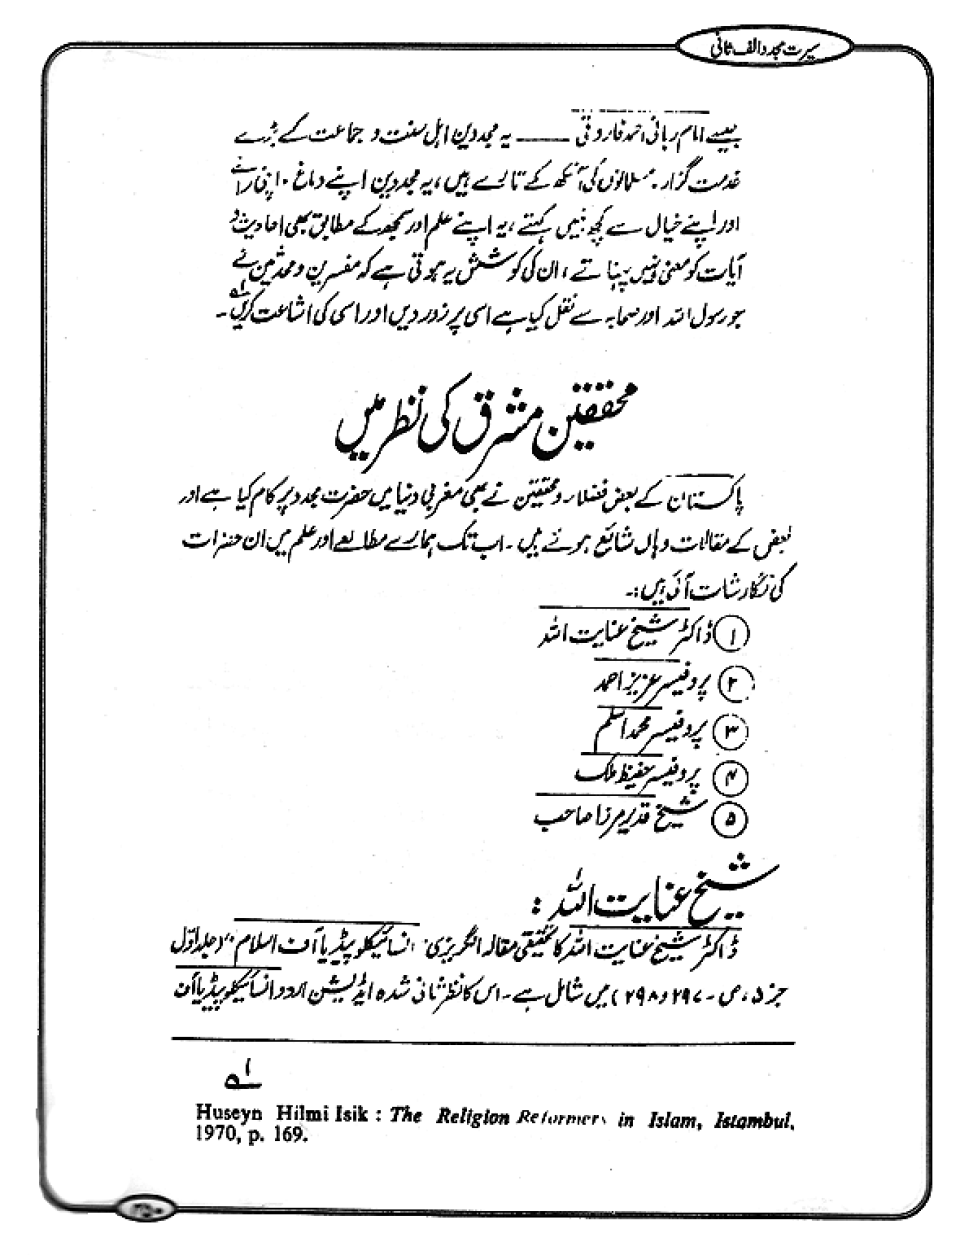 سیرت مجدد الف ثانی
جیسے امام ربانی احمد فاروقی ——— یہ مجددین اہل سنت و جماعت کے بڑے
خدمت گزار، مسلمانوں کی آنکھ کے تارے ہیں، یہ مجددین اپنے دماغ، اپنی رائے
اور اپنے خیال سے کچھ نہیں کہتے، یہ اپنے علم اور سمجھ کے مطابق بھی احادیث و
آیات کو معنی نہیں پہناتے، ان کی کوشش یہ ہوتی ہے کہ مفسرین و محدثین نے
جو رسول اللہ اور صحابہ سے نقل کیا ہے اسی پر زور دیں اور اسی کی اشاعت کریں۔ ۱ھ
محققین مشرق کی نظر میں
پاکستان کے بعض فضلاء و محققین نے بھی مغربی دنیا میں حضرت مجدد پر کام کیا ہے اور
بعض کے مقالات وہاں شائع ہوئے ہیں۔ اب تک ہمارے مطالعے اور علم میں ان حضرات
کی نگارشات آئی ہیں:۔
۱ ڈاکٹر شیخ عنایت اللہ
۲ پروفیسر عزیز احمد
۳ پروفیسر محمد اسلم
۴ پروفیسر حفیظ ملک
۵ شیخ قدیر مرزا صاحب
شیخ عنایت اللہ :
ڈاکٹر شیخ عنایت اللہ کا تحقیقی مقالہ انگریزی "انسائیکلوپیڈیا آف اسلام" (جلد اوّل
جز ۵، ص۔ ۲۹۷ و ۲۹۸) میں شامل ہے۔ اس کا نظر ثانی شدہ ایڈیشن اردو انسائیکلوپیڈیا آف
۱ھ
Huseyn Hilmi Isik : The Religion Reformers in Islam, Istambul,
1970, p. 169.